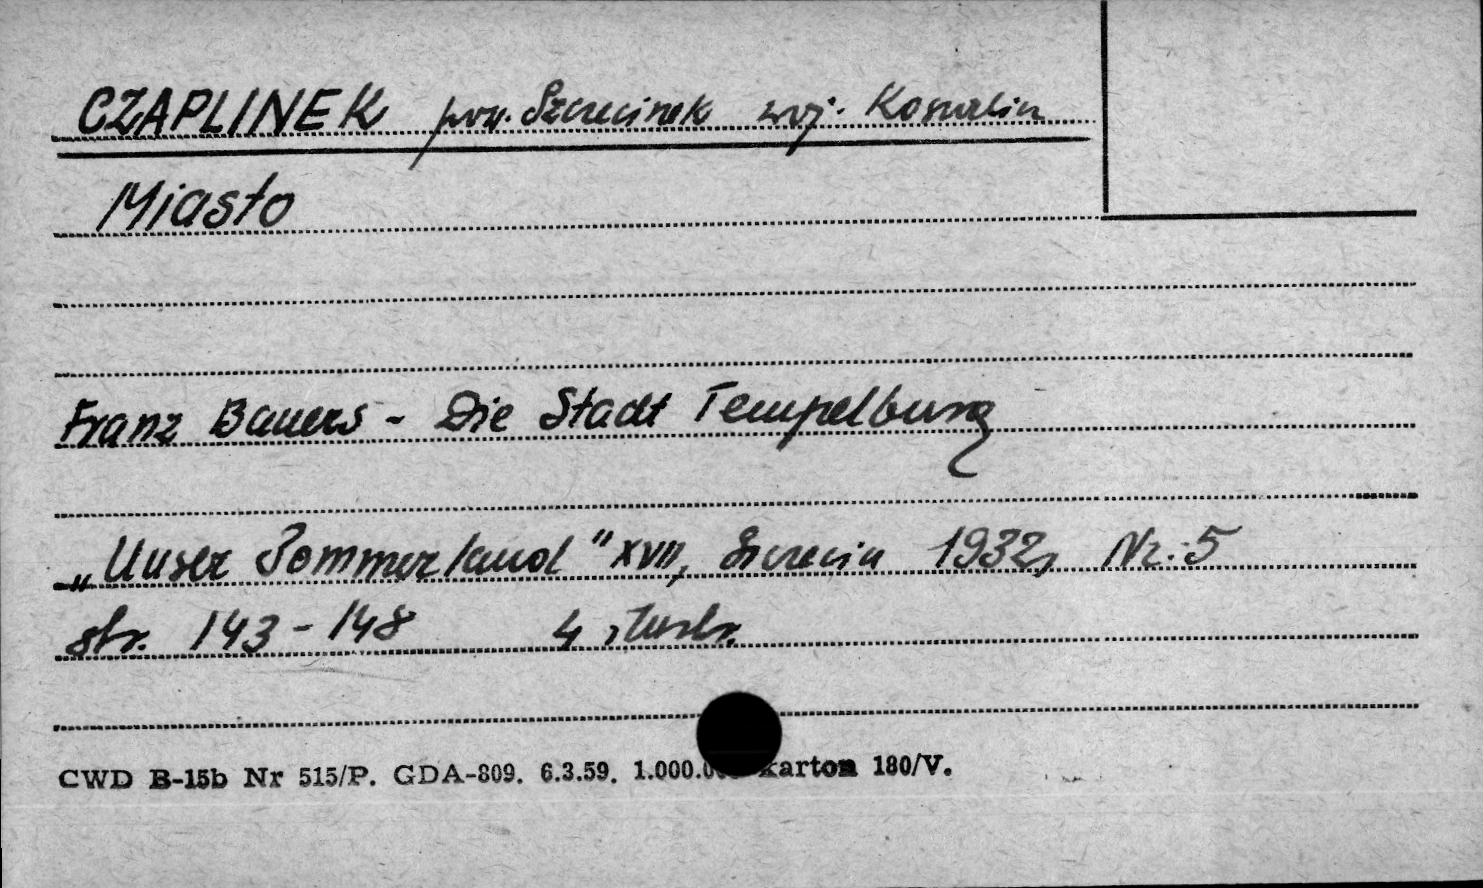 CZAPLINEK pow. Szczecinek woj. Koszalin
Miasto
Franz Bauers - Die Stadt Tempelburg
„Unser Pommerland" XVII, Szczecin 1932, Nr. 5
str. 143-148 4 ilustr.
CWD B-15b Nr 515/P. GDA-809. 6.3.59. 1.000.0 karton 180/V.